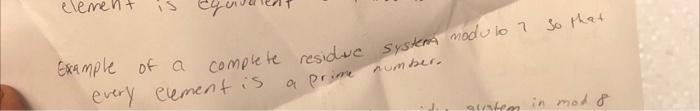 element is equivalent
Example of a complete residue system modulo 7 so that
every element is a prime number.
system in mod 8